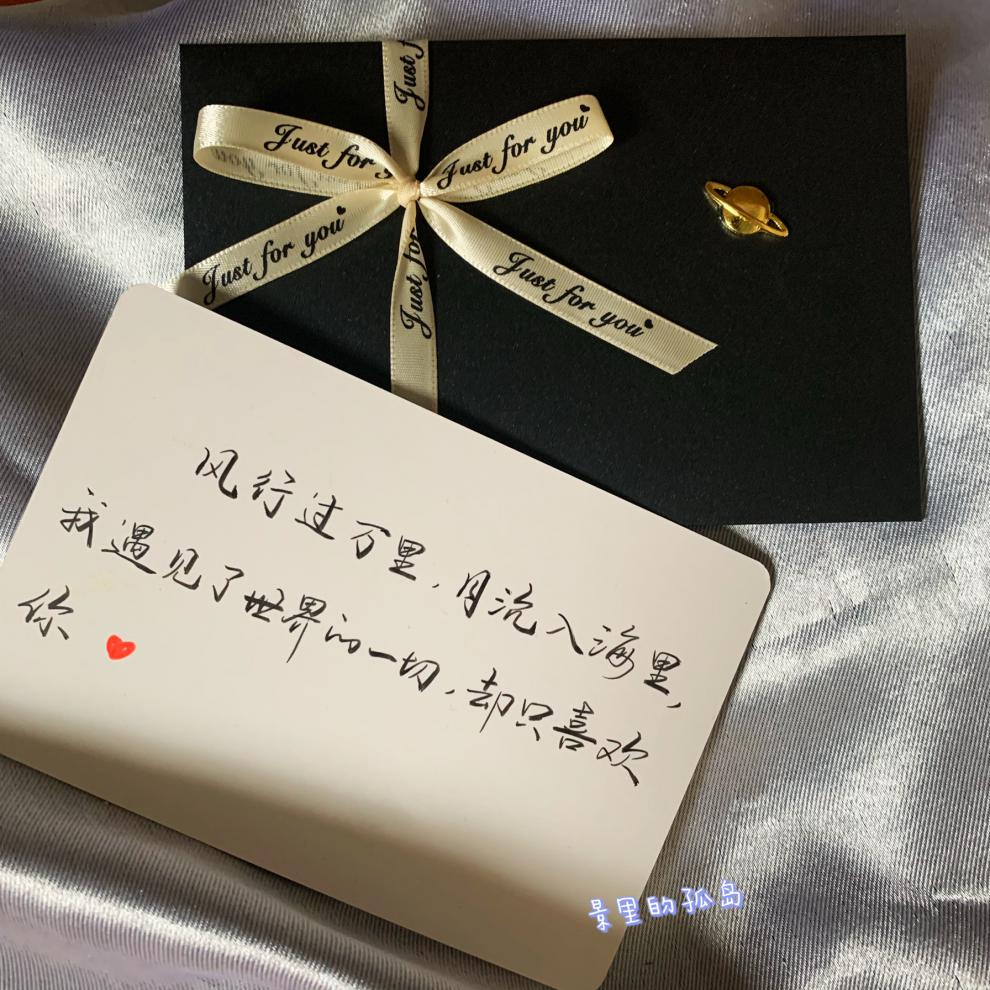 Just f
Just for y
Just for you
Just for you
Just for
Just for you
风行过万里，月流入海里，
我遇见了世界的一切，却只喜欢
你
景里的孤岛